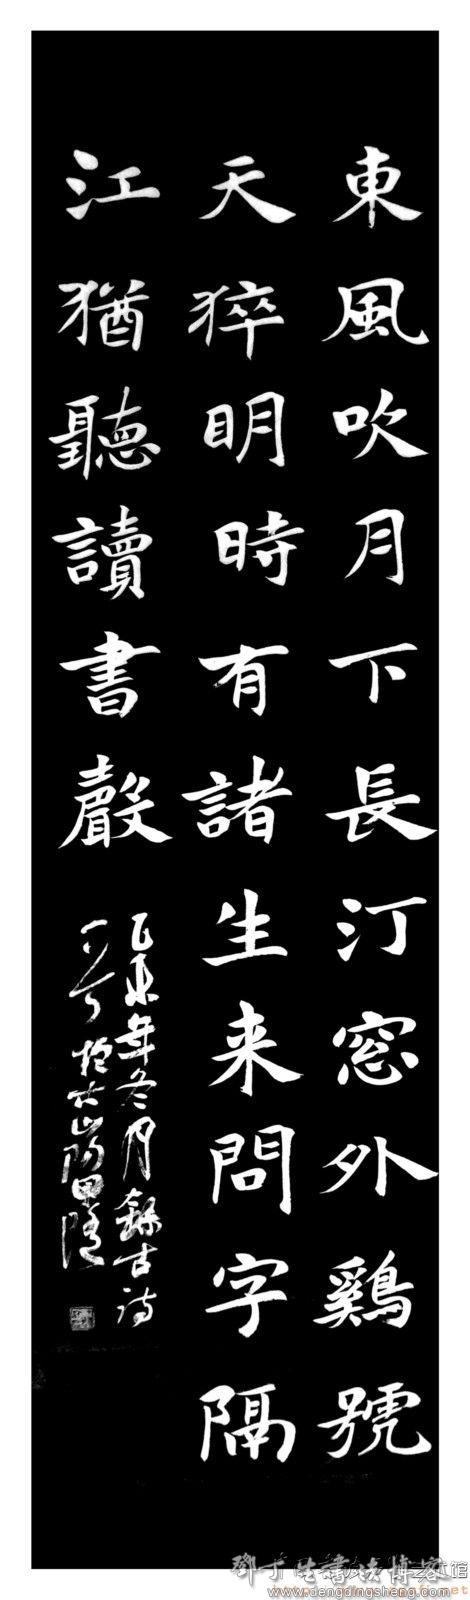 東風吹月下長汀窓外鷄號
天猝明時有諸生来問字隔
江猶聽讀書聲
乙未年冬月録古詩
一首於
鄧丁生書法博客
www.dengdingsheng.com